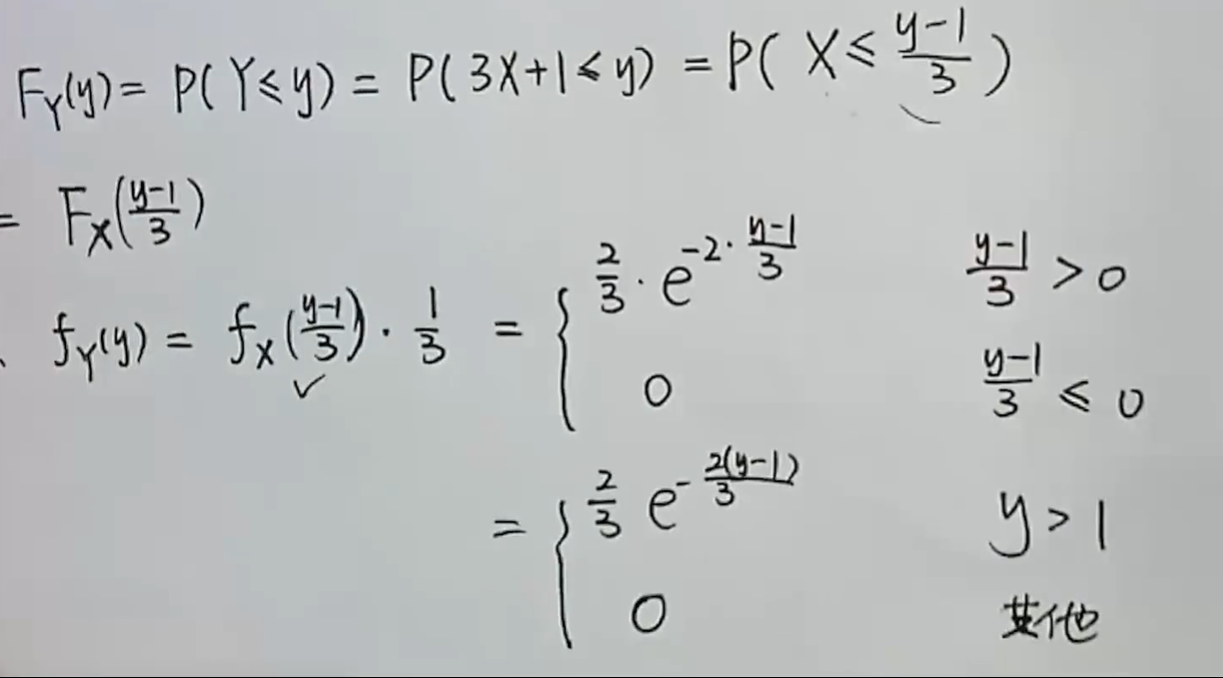 F_Y(y) = P(Y ≤ y) = P(3X+1 ≤ y) = P( X ≤ \frac{y-1}{3} )
= F_X(\frac{y-1}{3})
f_Y(y) = f_X(\frac{y-1}{3}) · \frac{1}{3} = { \frac{2}{3} · e^{-2·\frac{y-1}{3}} \frac{y-1}{3} > 0
0 \frac{y-1}{3} ≤ 0
= { \frac{2}{3} e^{-\frac{2(y-1)}{3}} y > 1
0 其他